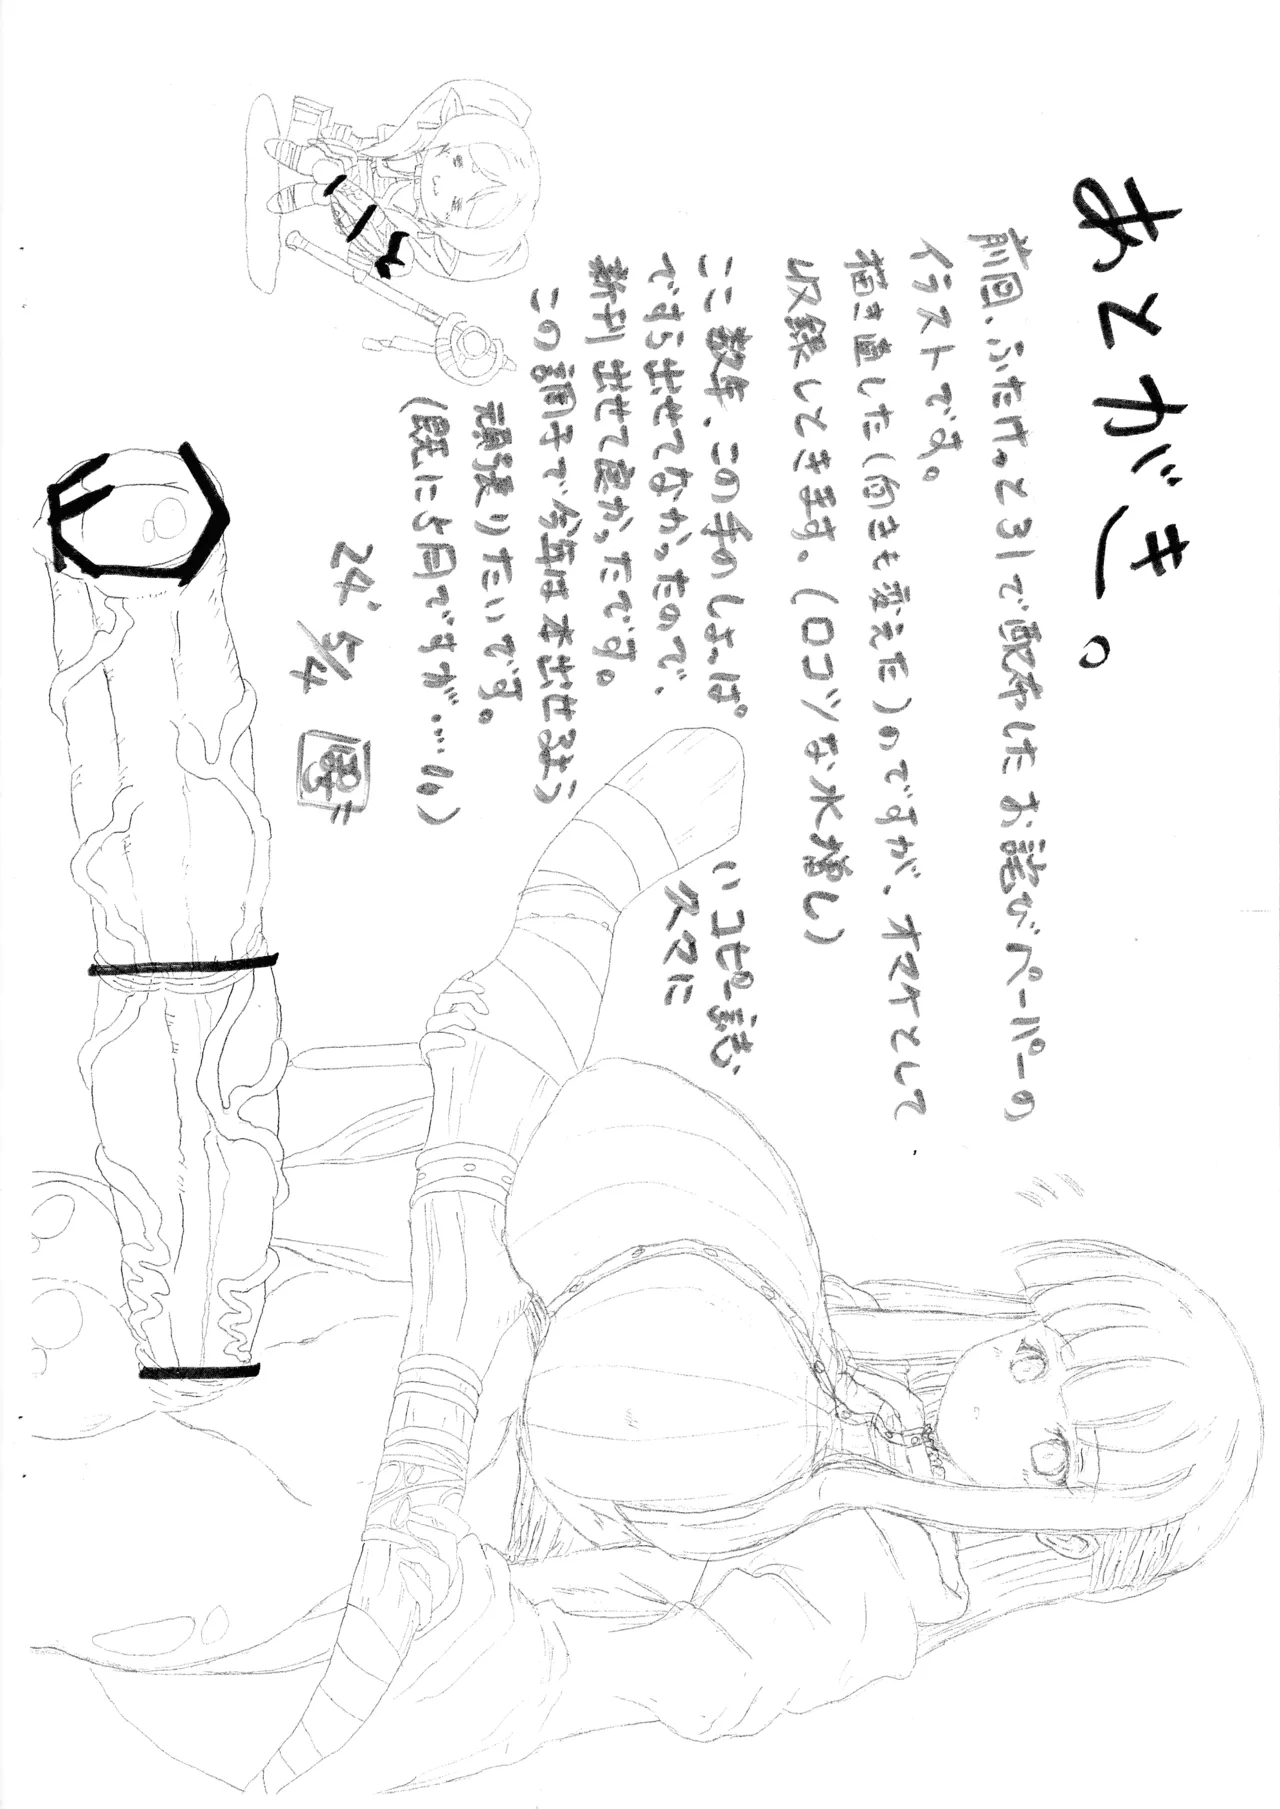 あとがき。
前回、ふたけっと31で配布したお詫びペーパーの
イラストです。
描き直した(向きも変えた)のですが、オマケとして
収録しときます。(ロコツな水増し)
ここ数年、この手のしょっぱい
コピー誌
ですら出せてなかったので、
新刊出せて良かったです。
この調子で今年は本出せるよう
頑張りたいです。
(既に5月ですが…!!o)
24' 5/4